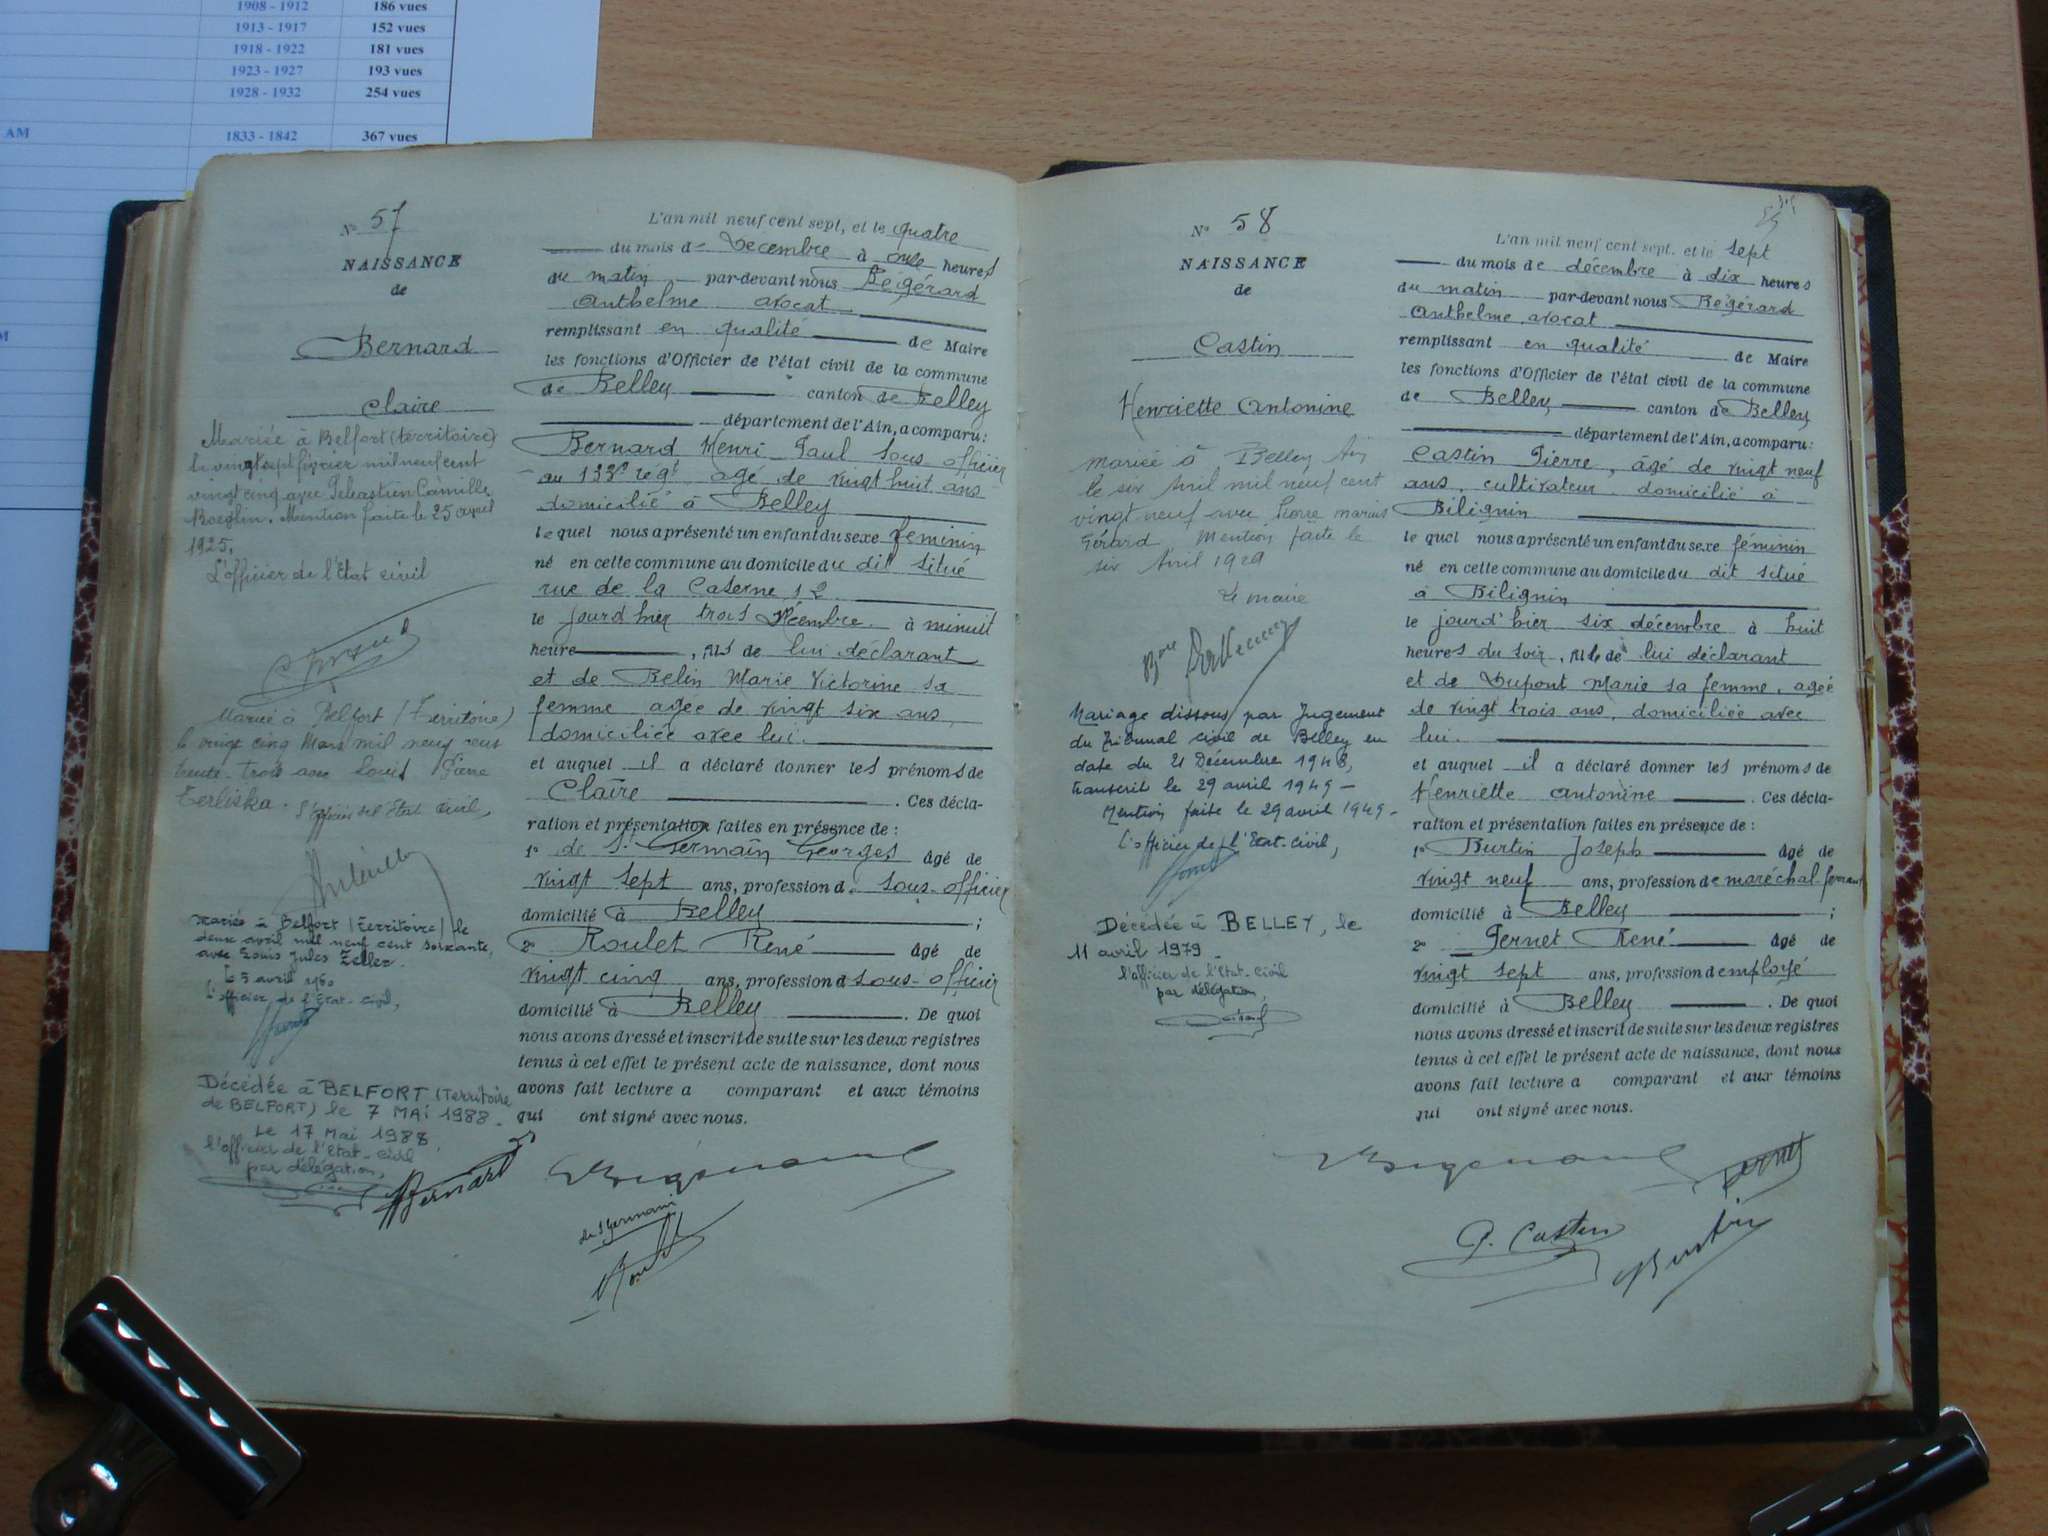 1908 - 1912 186 vues
1913 - 1917 152 vues
1918 - 1922 181 vues
1923 - 1927 193 vues
1928 - 1932 254 vues
AM 1833 - 1842 367 vues
N° 57
NAISSANCE
de
Bernard
Claire
Mariée à Belfort (territoire)
le vingt sept février mil neuf cent
vingt cinq avec Sébastien Camille
Boeglin. Mention faite le 25 avril
1925.
L'officier de l'Etat civil
Mariée à Belfort (Territoire)
le vingt cinq Mars mil neuf cent
trente-trois avec Louis Pierre
Terliska. L'officier de l'Etat Civil,
Mariée à Belfort (territoire) le
deux avril mil neuf cent soixante,
avec Louis Jules Zeller.
Le 5 avril 1960
l'officier de l'Etat-civil,
Décédée à BELFORT (Territoire
de BELFORT) le 7 MAI 1988.
Le 17 Mai 1988,
l'officier de l'Etat-civil
par délégation,
L'an mil neuf cent sept, et le quatre
du mois de Decembre à onze heures
du matin par-devant nous Bégérard
Anthelme avocat
remplissant en qualité de Maire
les fonctions d'Officier de l'état civil de la commune
de Belley canton de Belley
département de l'Ain, a comparu:
Bernard Henri Paul Sous-officier
au 133e regt agé de vingt huit ans
domicilié à Belley
lequel nous a présenté un enfant du sexe feminin
né en cette commune au domicile du dit situé
rue de la Caserne 12
le jourd'hier trois Décembre à minuit
heure, fils de lui déclarant
et de Belin Marie Victorine sa
femme agée de vingt six ans,
domiciliée avec lui.
et auquel il a déclaré donner les prénoms de
Claire. Ces décla-
ration et présentation faites en présence de :
1° de St Germain Georges âgé de
vingt sept ans, profession de sous-officier
domicilié à Belley ;
2° Roulet René âgé de
vingt cinq ans, profession d sous-officier
domicilié à Belley. De quoi
nous avons dressé et inscrit de suite sur les deux registres
tenus à cet effet le présent acte de naissance, dont nous
avons fait lecture a comparant et aux témoins
qui ont signé avec nous.
Bernard
de St Germain
Roulet
N° 58
NAISSANCE
de
Castin
Henriette Antonine
Mariée à Belley Ain
le six Avril mil neuf cent
vingt neuf avec Pierre marius
Gérard Mention faite le
six Avril 1929
Le maire
Mariage dissous par Jugement
du Tribunal civil de Belley en
date du 21 Décembre 1948,
transcrit le 29 avril 1949 -
Mention faite le 29 avril 1949 -
l'officier de l'Etat-civil,
Décédée à BELLEY, le
11 avril 1979
l'officier de l'Etat-civil
par délégation,
L'an mil neuf cent sept. et le sept
du mois de décembre à dix heures
du matin par-devant nous Bégérard
Anthelme avocat
remplissant en qualité de Maire
les fonctions d'Officier de l'état civil de la commune
de Belley canton de Belley
département de l'Ain, a comparu:
Castin Pierre, âgé de vingt neuf
ans, cultivateur domicilié à
Bilignin
lequel nous a présenté un enfant du sexe féminin
né en cette commune au domicile du dit situé
à Bilignin
le jourd'hier six décembre à huit
heures du soir, fille de lui déclarant
et de Dupont Marie sa femme, agée
de vingt trois ans, domiciliée avec
lui.
et auquel il a déclaré donner les prénoms de
Henriette Antonine. Ces décla-
ration et présentation faites en présence de :
1° Burtin Joseph âgé de
vingt neuf ans, profession de maréchal-ferrant
domicilié à Belley ;
2° Pernet René âgé de
vingt sept ans, profession d employé
domicilié à Belley. De quoi
nous avons dressé et inscrit de suite sur les deux registres
tenus à cet effet le présent acte de naissance, dont nous
avons fait lecture a comparant et aux témoins
qui ont signé avec nous.
Pernet
P. Castin
Burtin